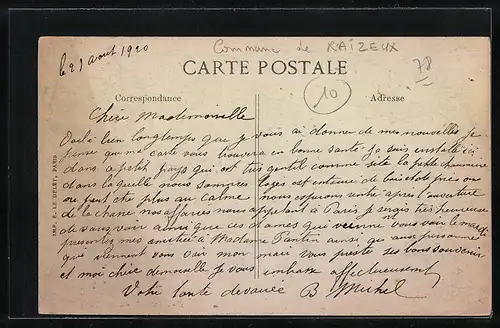 le 21 août 1920
Commune de RAIZEUX
78
CARTE POSTALE
10
Correspondance
Adresse
IMP. E. LE DELEY, PARIS
Chère Mademoiselle
Voilà bien longtemps que je vous ai donné de mes nouvelles je
pense que ma carte vous trouvera en bonne santé je suis installé ici
dans ce petit pays qui est très gentil comme site la petite chaumière
dans laquelle nous sommes logés est entourée de bois
on peut être plus au calme nous espérons rentré après l'ouverture
de la chasse nos affaires nous appelant à Paris je serais très heureuse
de vous voir ainsi que ces dames qui vienne vous voir le mardi
présentés mes amitiés à Madame Pantin ainsi que aux personnes
que viennent vous voir mon mari vous ses bons souvenir
et moi chère demoiselle je vous embrasse affectueusement
Votre tante dévouée B Michel